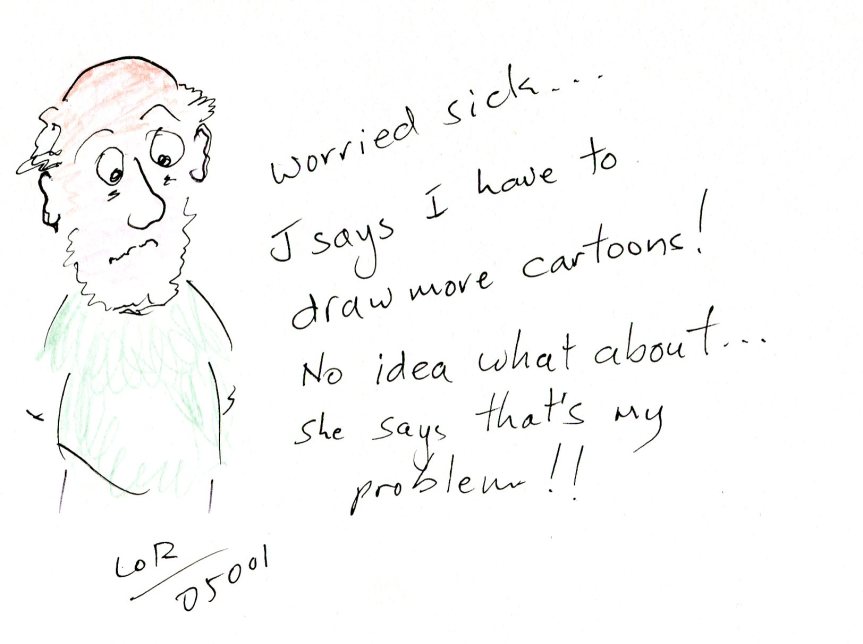 worried sick....
J says I have to
draw more cartoons!
No idea what about...
she says that's my
problem!!
LOR
05001